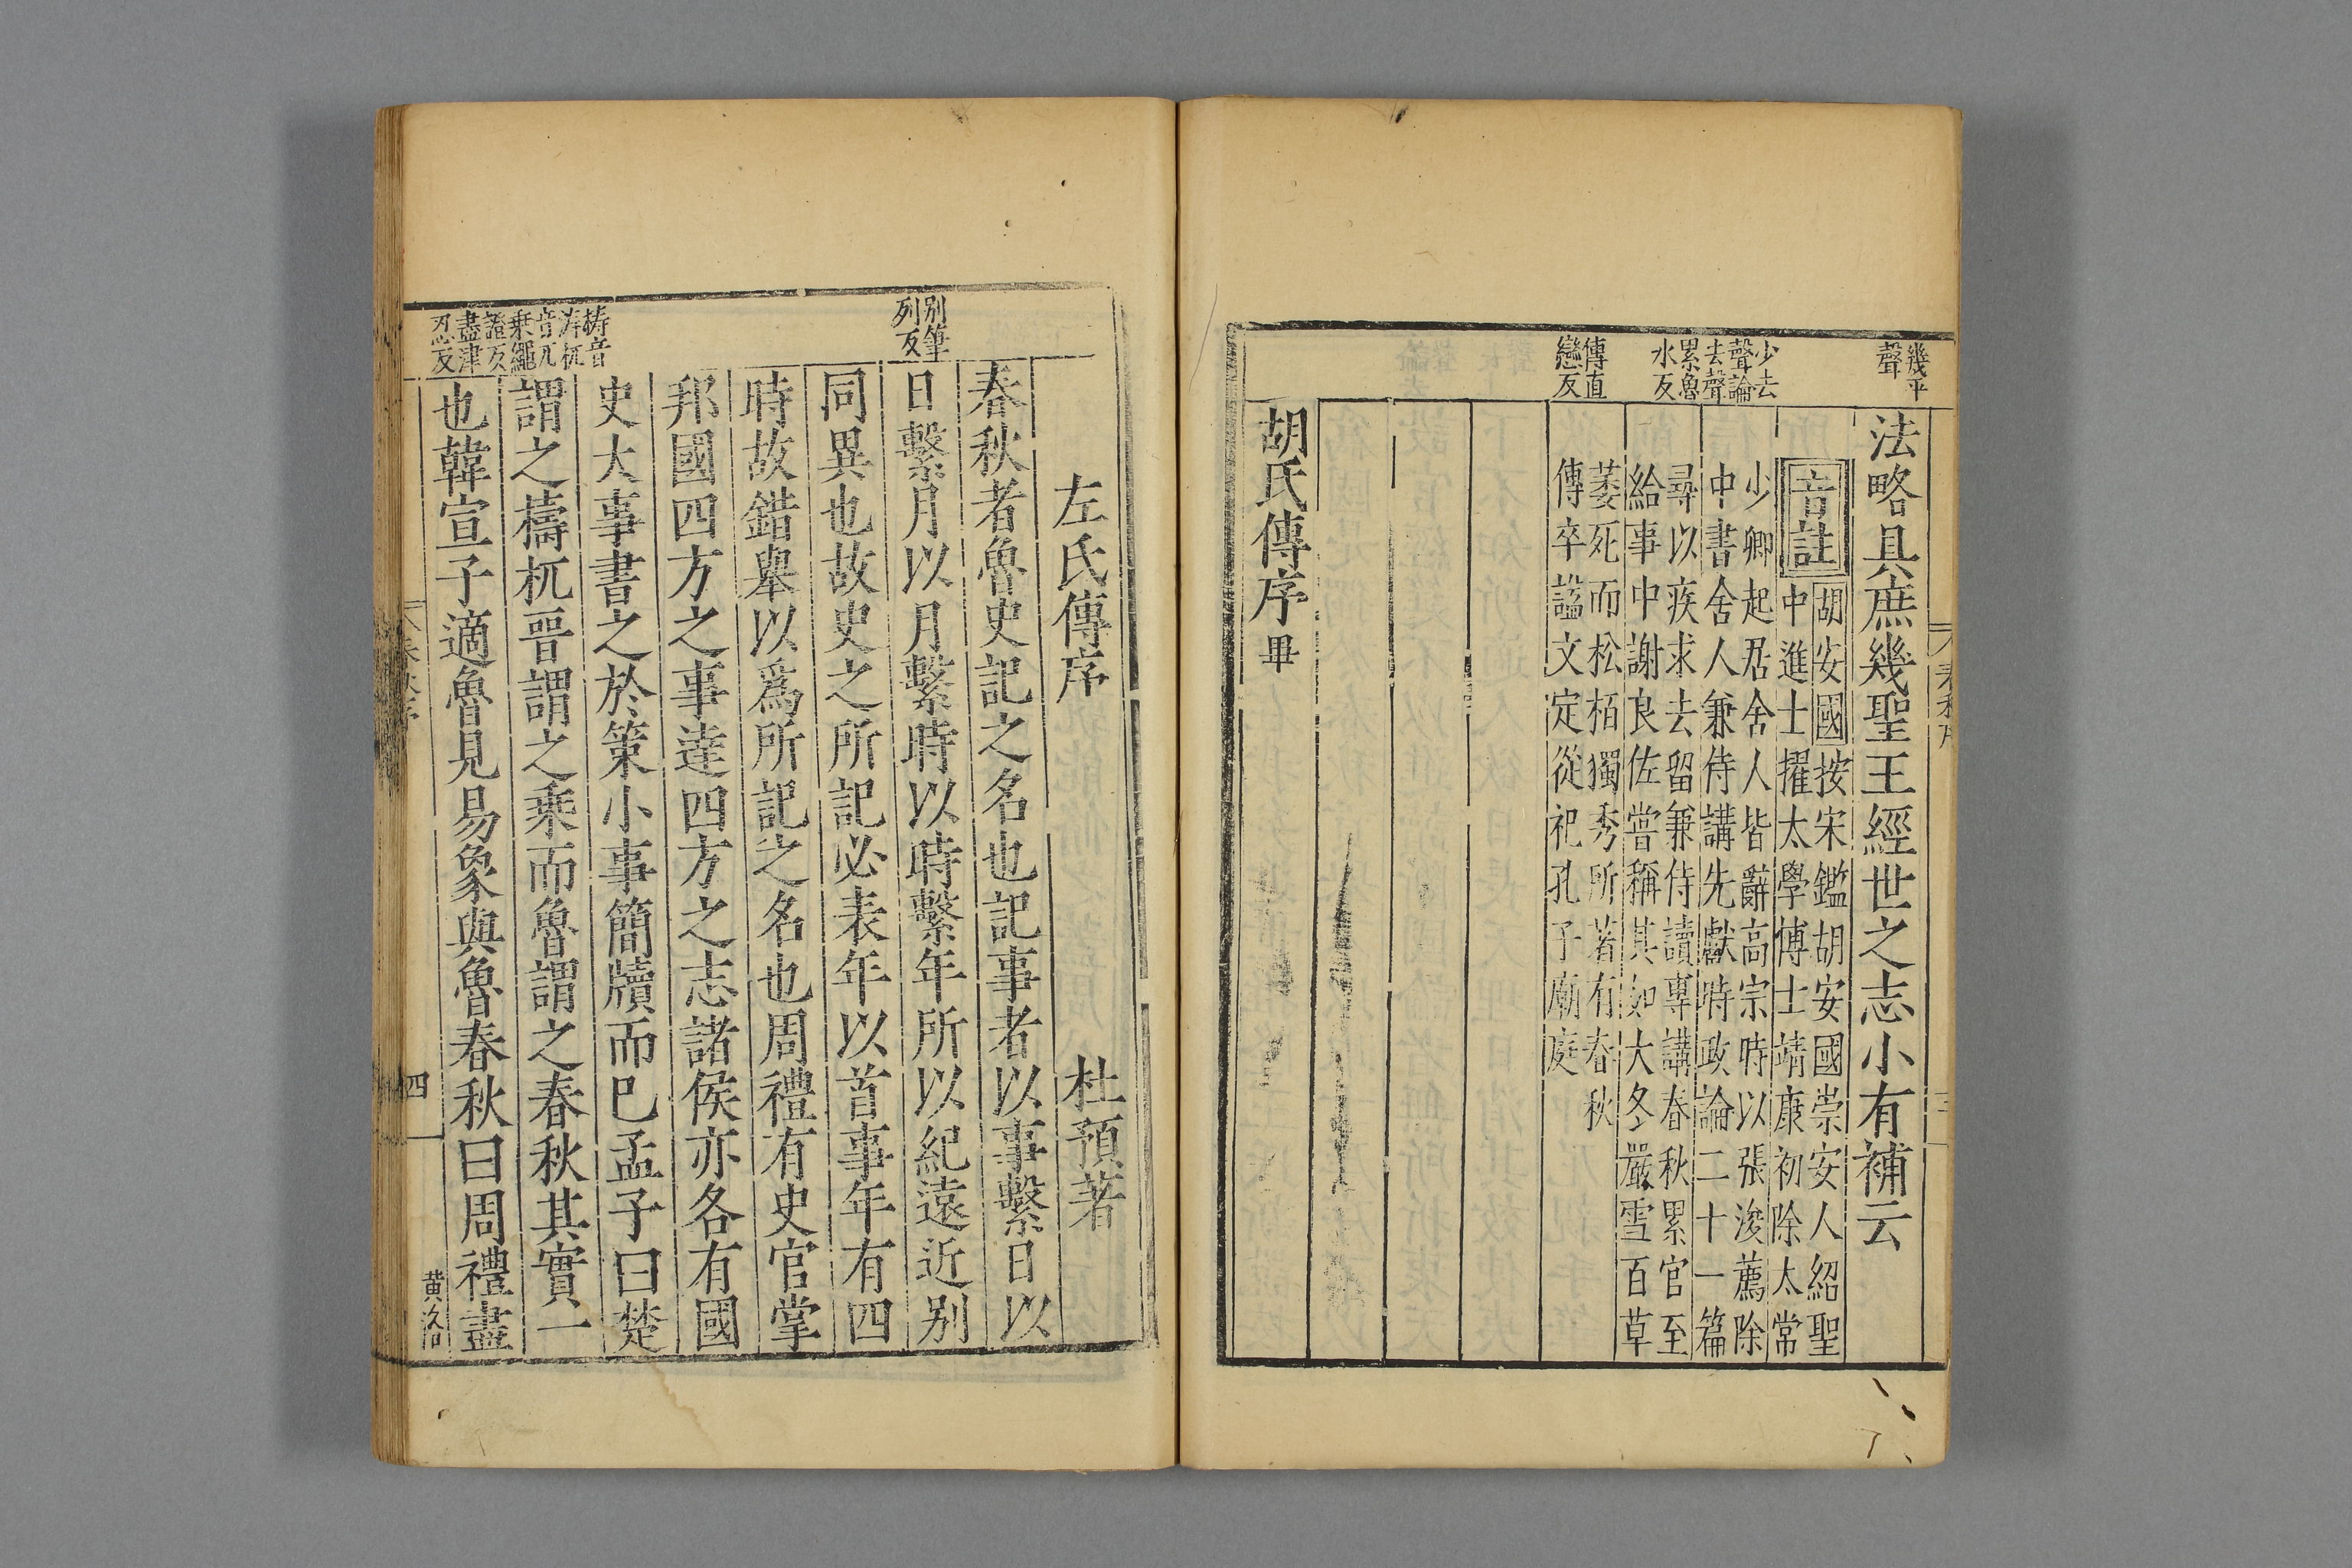 幾平
聲
法略具庶幾聖王經世之志小有補云
音註
胡安國按宋鑑胡安國崇安人紹聖
中進士擢太學博士靖康初除太常
少去
聲論
去聲
累魯
水反
少卿起居舍人皆辭高宗時以張浚薦除
中書舍人兼侍講先獻時政論二十一篇
尋以疾求去留兼侍讀專講春秋累官至
給事中謝良佐嘗稱其如大冬嚴雪百草
傳直
戀反
萎死而松栢獨秀所著有春秋
傳卒謚文定從祀孔子廟庭
胡氏傳序畢
左氏傳序 杜預著
春秋者魯史記之名也記事者以事繫日以
别筆
列反
日繫月以月繫時以時繫年所以紀遠近别
同異也故史之所記必表年以首事年有四
時故錯舉以爲所記之名也周禮有史官掌
邦國四方之事達四方之志諸侯亦各有國
史大事書之於策小事簡牘而巳孟子曰楚
梼音
涛杌
音兀
乗繩
證反
盡津
忍反
謂之檮杌晋謂之乘而魯謂之春秋其實一
也韓宣子適魯見易象與魯春秋曰周禮盡
春秋序
四
黄洛